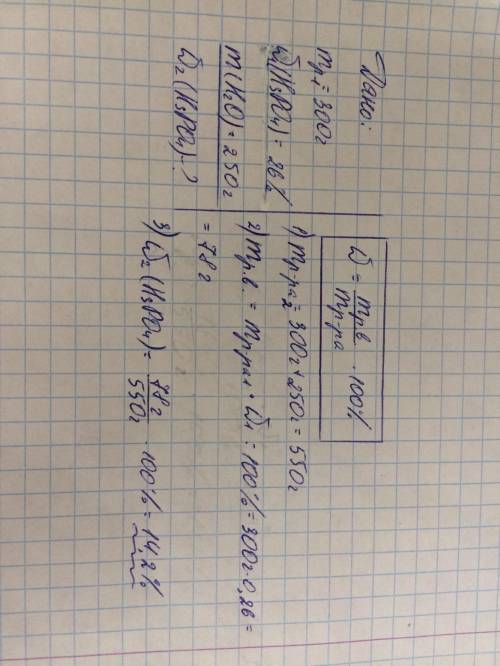 Дано:
mр₁ = 300г
ω₁(H₃PO₄) = 26%
m(H₂O) = 250г
ω₂(H₃PO₄) - ?
ω = mрв / mр-ра · 100%
1) mр-ра₂ = 300г + 250г = 550г
2) mр.в = mр-ра₁ · ω₁ : 100% = 300г · 0,26 =
= 78г
3) ω₂(H₃PO₄) = 78г / 550г · 100% = 14,2%